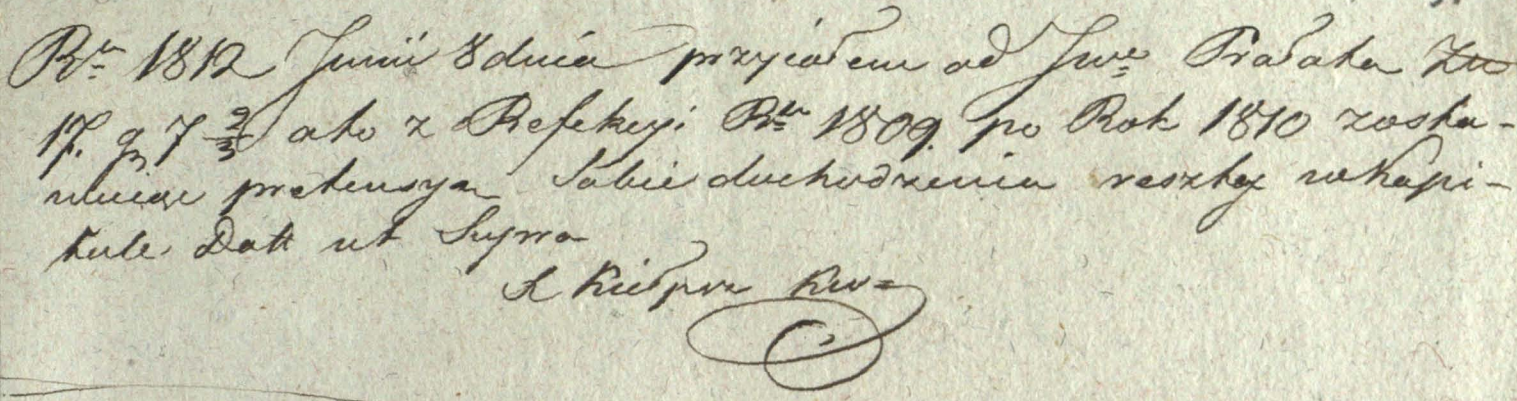 Ru 1812 Junii 8 dnia przyiąłem od Jwe Prałata Zn
17. g 7 2/3 a to z Refekcyi Ru 1809. po Rok 1810 zosta-
wuiąc pretensyą Sobie dochodzenia reszty w Kapi-
tule. Datt ut Supra